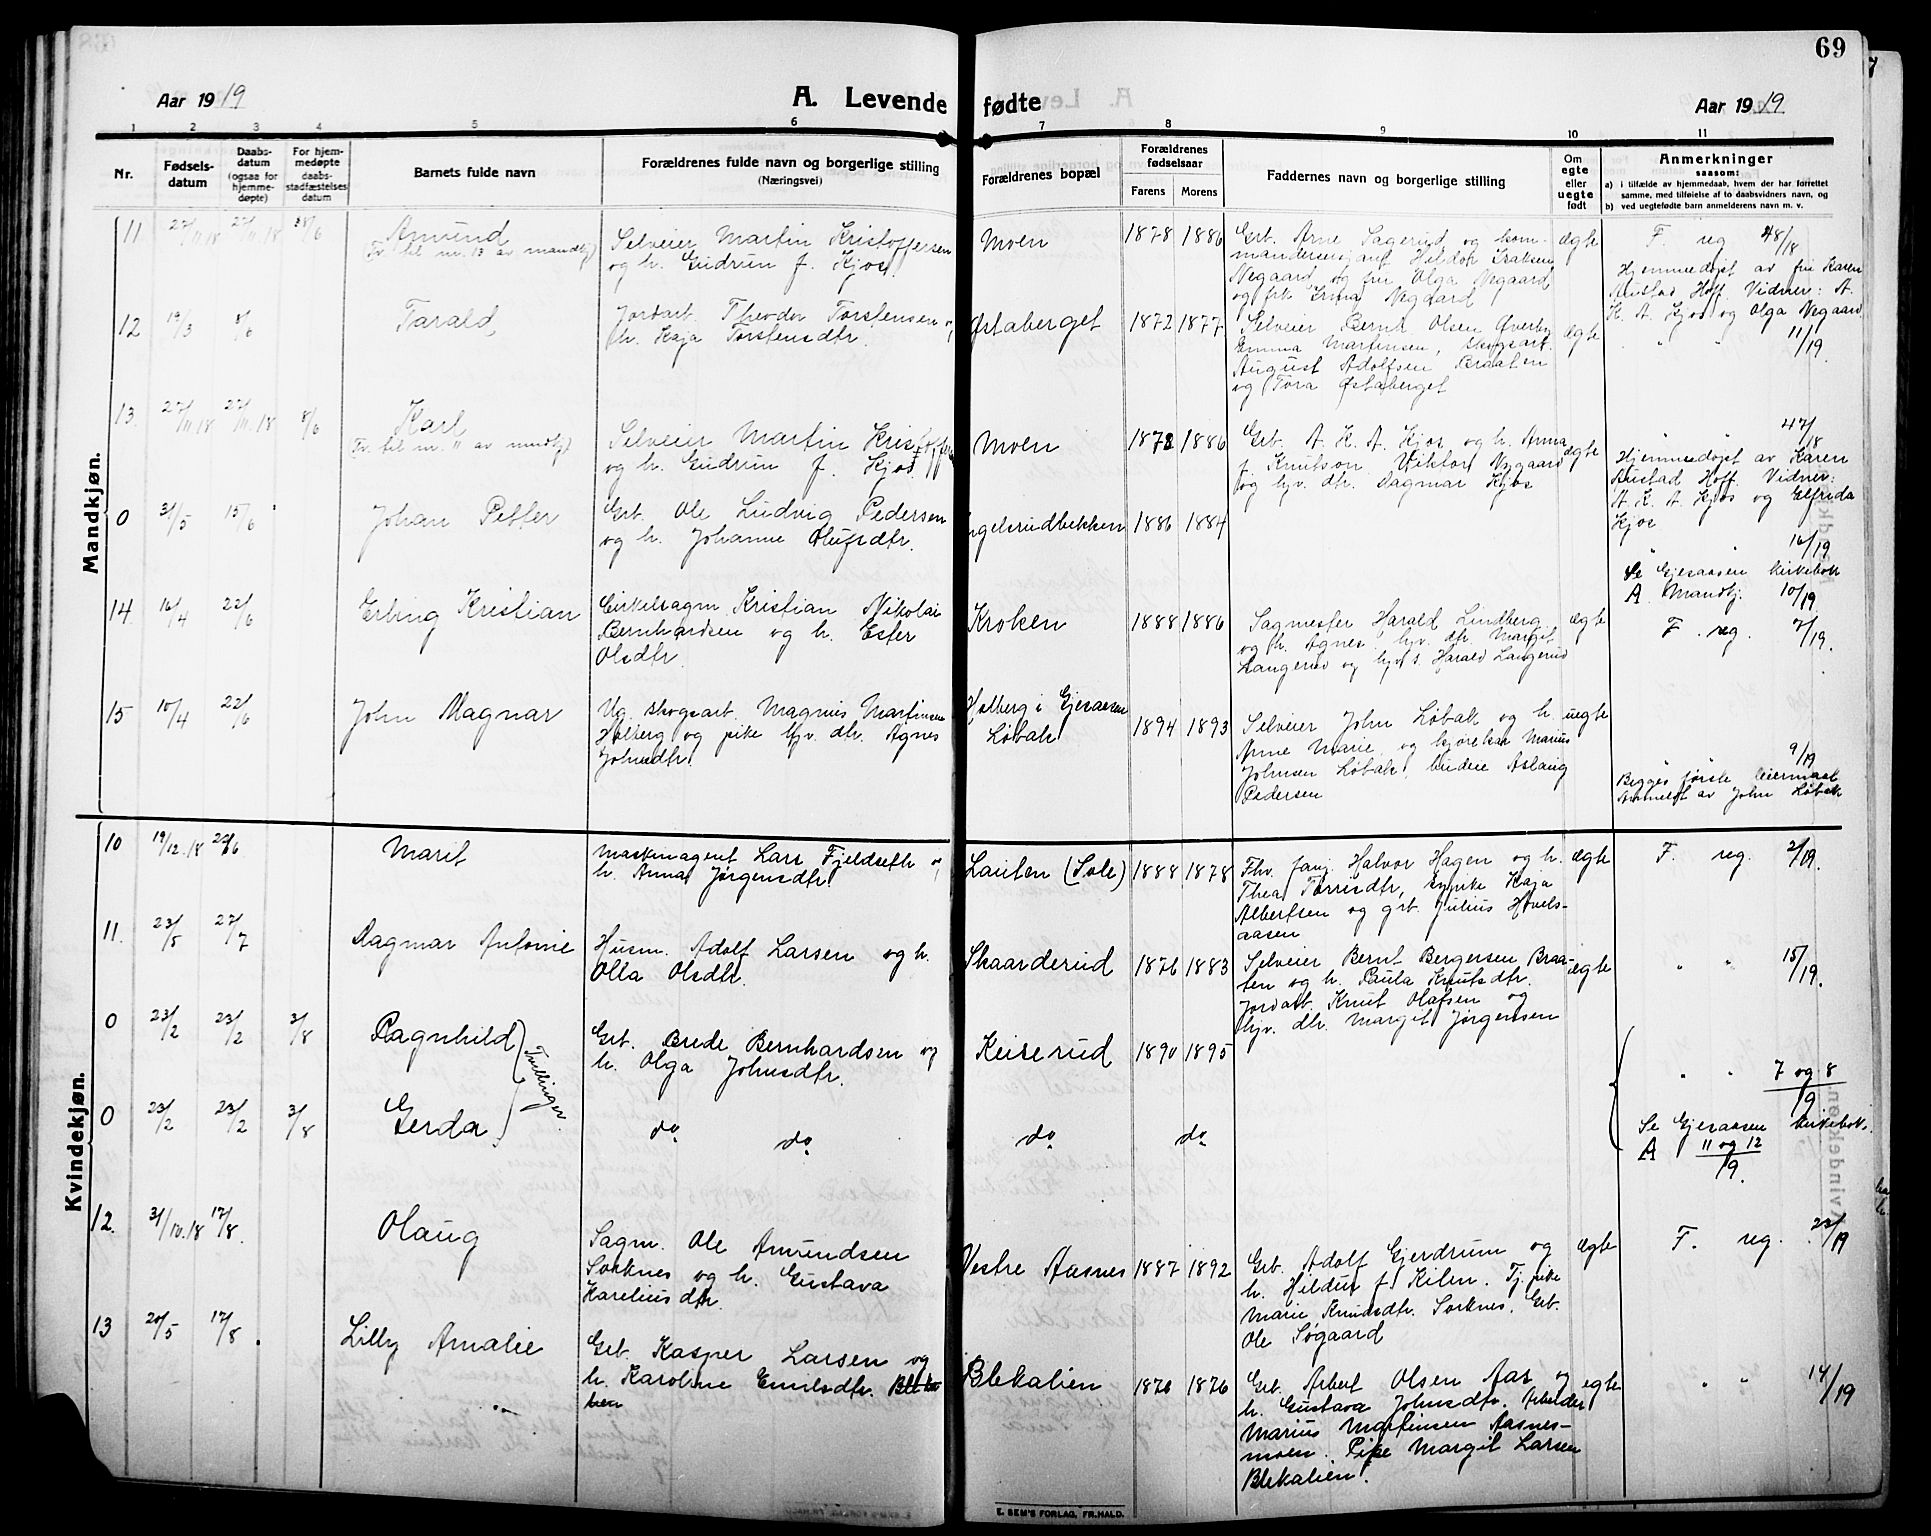 69
Aar 1919
A. Levende fødte
Aar 1919
1 2 3 4 5 6 7 8 9 10 11
Nr.
Fødsels-
datum
Daabs-
datum
(ogsaa for
hjemme-
døpte)
For hjem-
medøpte
daabs-
stadfæstelses
datum
Barnets fulde navn
Forældrenes fulde navn og borgerlige stilling
(Næringsvei)
Forældrenes bopæl
Forældrenes
fødselsaar
Farens Morens
Faddernes navn og borgerlige stilling
Om
egte
eller
uegte
født
Anmerkninger
saasom:
a) i tilfælde av hjemmedaab, hvem der har forrettet
samme, med tilføielse af to daabsvidners navn, og
b) ved uegtefødte barn anmelderens navn m. v.
Mandkjøn.
11 27/11.18 27/11.18 8/6
Amund
Tv. til nr. 13 av mandkj.
Selveier Martin Kristoffersen
og h. Gudrun f. Kjos.
Moen
1878 1886
Grb. Arne Sagerud og kom-
mandersersjant Heldor Isaksen
Negaard og fru Olga Negaard
og frk Erna Negaard
ægte
F. reg 48/18
Hjemmedøpt av fru Karen
Austad Hoff. Vidner: A.
K. A. Kjos og Olga Negaard
12 19/3 8/6
Tarald,
Jordarb. Theodor Torstensen o,
h. Kaja Torstensdtr.
Østaberget
1872 1877
Selveier Bernt Olsen Øverby
Emma Martinsen, skogsarb.
August Adolfsen Braaten
og Tora Østaberget
ægte
" " 11/19.
13. 27/11.18 27/11.18 8/6
Karl
Tv. til nr. 11 av mandkj.
Selveier Martin Kristoffersen
og h. Gudrun f. Kjos.
Moen
1878 1886
Grb. A. K. A. Kjos og h. Anna
f. Knutson. Viktor Nygaard
og hjv. dtr. Dagmar Kjos
ægte
" " 47/18
Hjemmedøpt av Karen
Austad Hoff. Vidner:
A. K. A. Kjos og Elfrida
Kjos
0 31/5 15/6
Johan Petter
Grb. Ole Ludvig Pedersen
og h. Johanne Olufsdtr.
Ingelsrudbekken
1886 1884
" " 16/19
Se Gjesaasen kirkebok
A Mandkj. 10/19
14 16/4 22/6
Erling Kristian
Cirkelsagm. Kristian Nikolai
Bernhardsen og h. Ester
Olsdtr.
Kroken
1888 1886
Sagmester Harald Lindberg
og h. Agnes, hjv. dtr. Margit
Langerud og hjv. s. Harald Langerud
ægte
F. reg. 7/19.
15 10/4 22/6
John Magnar
Ug. skogsarb. Magnus Martinsen
Holberg og pike hjv. dtr. Agnes
Johnsdtr.
Holberg i Gjesaasen
Løbak
1894 1893
Selveier John Løbak og h.
Anne Marie, og kjørekar Marius
Johnsen Løbak, budeie Aslaug
Pedersen
uegte
" " 9/19
Begges første leiermaal
Anmeldt av John Løbak
Kvindekjøn.
10 19/12.18 22/6
Marit
Maskinagent Lars Fjeldseth o,
h. Anna Jørgensdtr.
Lauten (Sole)
1888 1878
Fhv. fanj. Halvor Hagen og h.
Thea Torrisdtr, sypike Kaja
Albertsen og grb. Julius Hovels-
aasen
ægte
F. reg. 2/19.
11. 23/5 27/7
Dagmar Antonie
Husm. Adolf Larsen og h.
Olla Olsdtr.
Skaarderud
1876 1883
Selveier Bernt Bergersen Braa-
ten og h. Paula Knutsdtr.
Jordarb. Knut Olafsen og
hjv. dtr. Margit Jørgensen
ægte
" " 15/19.
0 23/2 23/2 3/8
Ragnhild
Tvillinger.
Grb. Brede Bernhardsen og
h. Olga Johnsdtr.
Keiserud
1890 1895
" " 7 og 8/19
0 23/2 23/2 3/8
Gerda
do do
do do
Se Gjesaasen kirkebok.
A 11 og 12/19.
12. 31/10.18 17/8.
Olaug
Sagm. Ole Amundsen
Sorknes og h. Gustava
Kareliusdtr.
Vestre Aasnes
1887 1892
Grb. Adolf Gjerdrum og
h. Hildur f. Kilen. Tj. pike
Marie Knudsdtr. Sorknes. Grb.
Ole Søgaard
ægte
F. reg. 23/19
13 20/5 17/8.
Lilly Amalie
Grb. Kasper Larsen og
h. Karoline Emilsdtr.
Blekalien
1870 1876
Grb. Arbert Olsen Aas og
h. Gustava Johnsdtr. Arbeider
Marius Martinsen Aasnes-
moen. Pike Margit Larsen
Blekalien.
egte
" " 14/19
E. SEM'S FORLAG, FR.HALD.